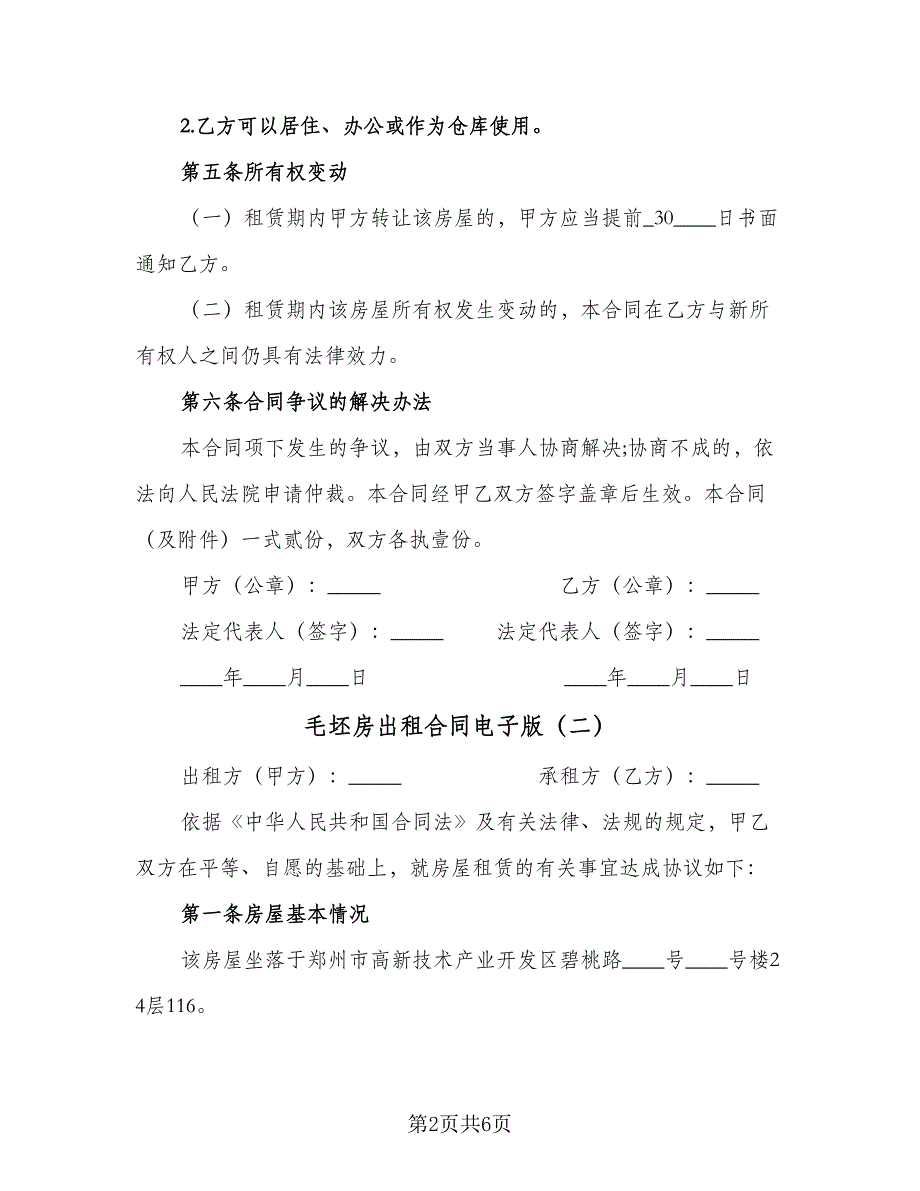 2.乙方可以居住、办公或作为仓库使用。
第五条所有权变动
（一）租赁期内甲方转让该房屋的，甲方应当提前_30____日书面
通知乙方。
（二）租赁期内该房屋所有权发生变动的，本合同在乙方与新所
有权人之间仍具有法律效力。
第六条合同争议的解决办法
本合同项下发生的争议，由双方当事人协商解决;协商不成的，依
法向人民法院申请仲裁。本合同经甲乙双方签字盖章后生效。本合同
（及附件）一式贰份，双方各执壹份。
甲方（公章）：_____ 乙方（公章）：_____
法定代表人（签字）：_____ 法定代表人（签字）：_____
____年____月____日 ____年____月____日
毛坯房出租合同电子版（二）
出租方（甲方）：_____ 承租方（乙方）：_____
依据《中华人民共和国合同法》及有关法律、法规的规定，甲乙
双方在平等、自愿的基础上，就房屋租赁的有关事宜达成协议如下：
第一条房屋基本情况
该房屋坐落于郑州市高新技术产业开发区碧桃路____号____号楼2
4层116。
第2页共6页